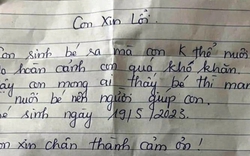 Con Xin Lỗi.
Con sinh bé ra mà con k thể nuôi
hoàn cảnh con quá khó khăn.
ậy con mong ai thấy bé thì mang
nuôi bé nên người giúp con.
é sinh ngày 19/5/2023.
on xin chân thành cảm ơn!